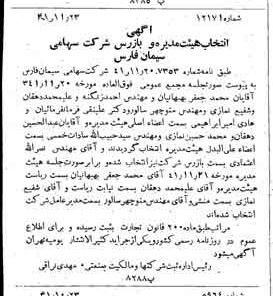 پ ۸۲۸۵
شماره ۱۲۱۷۱ ۴۱٫۱۱٫۲۳
آگهی
انتخاب هیئت مدیره و بازرس شرکت سهامی
سیمان فارس
طبق نامه شماره ۷۳۵۳ـ۴۱٫۱۱٫۲۰ شرکت سهامی سیمان فارس
به پیوست صورتجلسه مجمع عمومی فوق‌العاده مورخه ۳۴۱٫۱۱٫۲۰
آقایان محمد جعفر بهبهانیان و مهندس احمد زنگنه و علیمحمد دهقان
وشفیع نمازی ومهندس منوچهر سالور دکتر علینقی فرمانفرمائیان و
هادی امیر ابراهیمی بسمت اعضاء اصلی هیئت مدیره و آقایان عبدالحسین
دهقان و محمد حسین نمازی و مهندس سید حبیب‌الله سادات خمسی بسمت
اعضاء علی‌البدل هیئت مدیره انتخاب گردیدند و آقای مهندس نصرالله
اعتمادی بسمت بازرس شرکت نیز انتخاب شده و برابر صورت جلسه هیئت
مدیره مورخه ۴۱٫۱۱٫۲۱ آقای محمد جعفر بهبهانیان بسمت ریاست
هیئت مدیره و آقای علیمحمد دهقان بسمت نیابت ریاست و آقای شفیع
نمازی بسمت منشی و آقای مهندس منوچهر سالور بسمت مدیر عامل شرکت
انتخاب شده‌اند
مراتب طبق ماده ۲۰۰ قانون تجارت بثبت رسیده و برای اطلاع
عموم در روزنامه رسمی کشور و یکی از جراید کثیرالانتشار یومیه تهران
آگهی میشود
رئیس اداره ثبت شرکتها و مالکیت صنعتی ـ مهدی نراقی
پ ۸۲۸۸